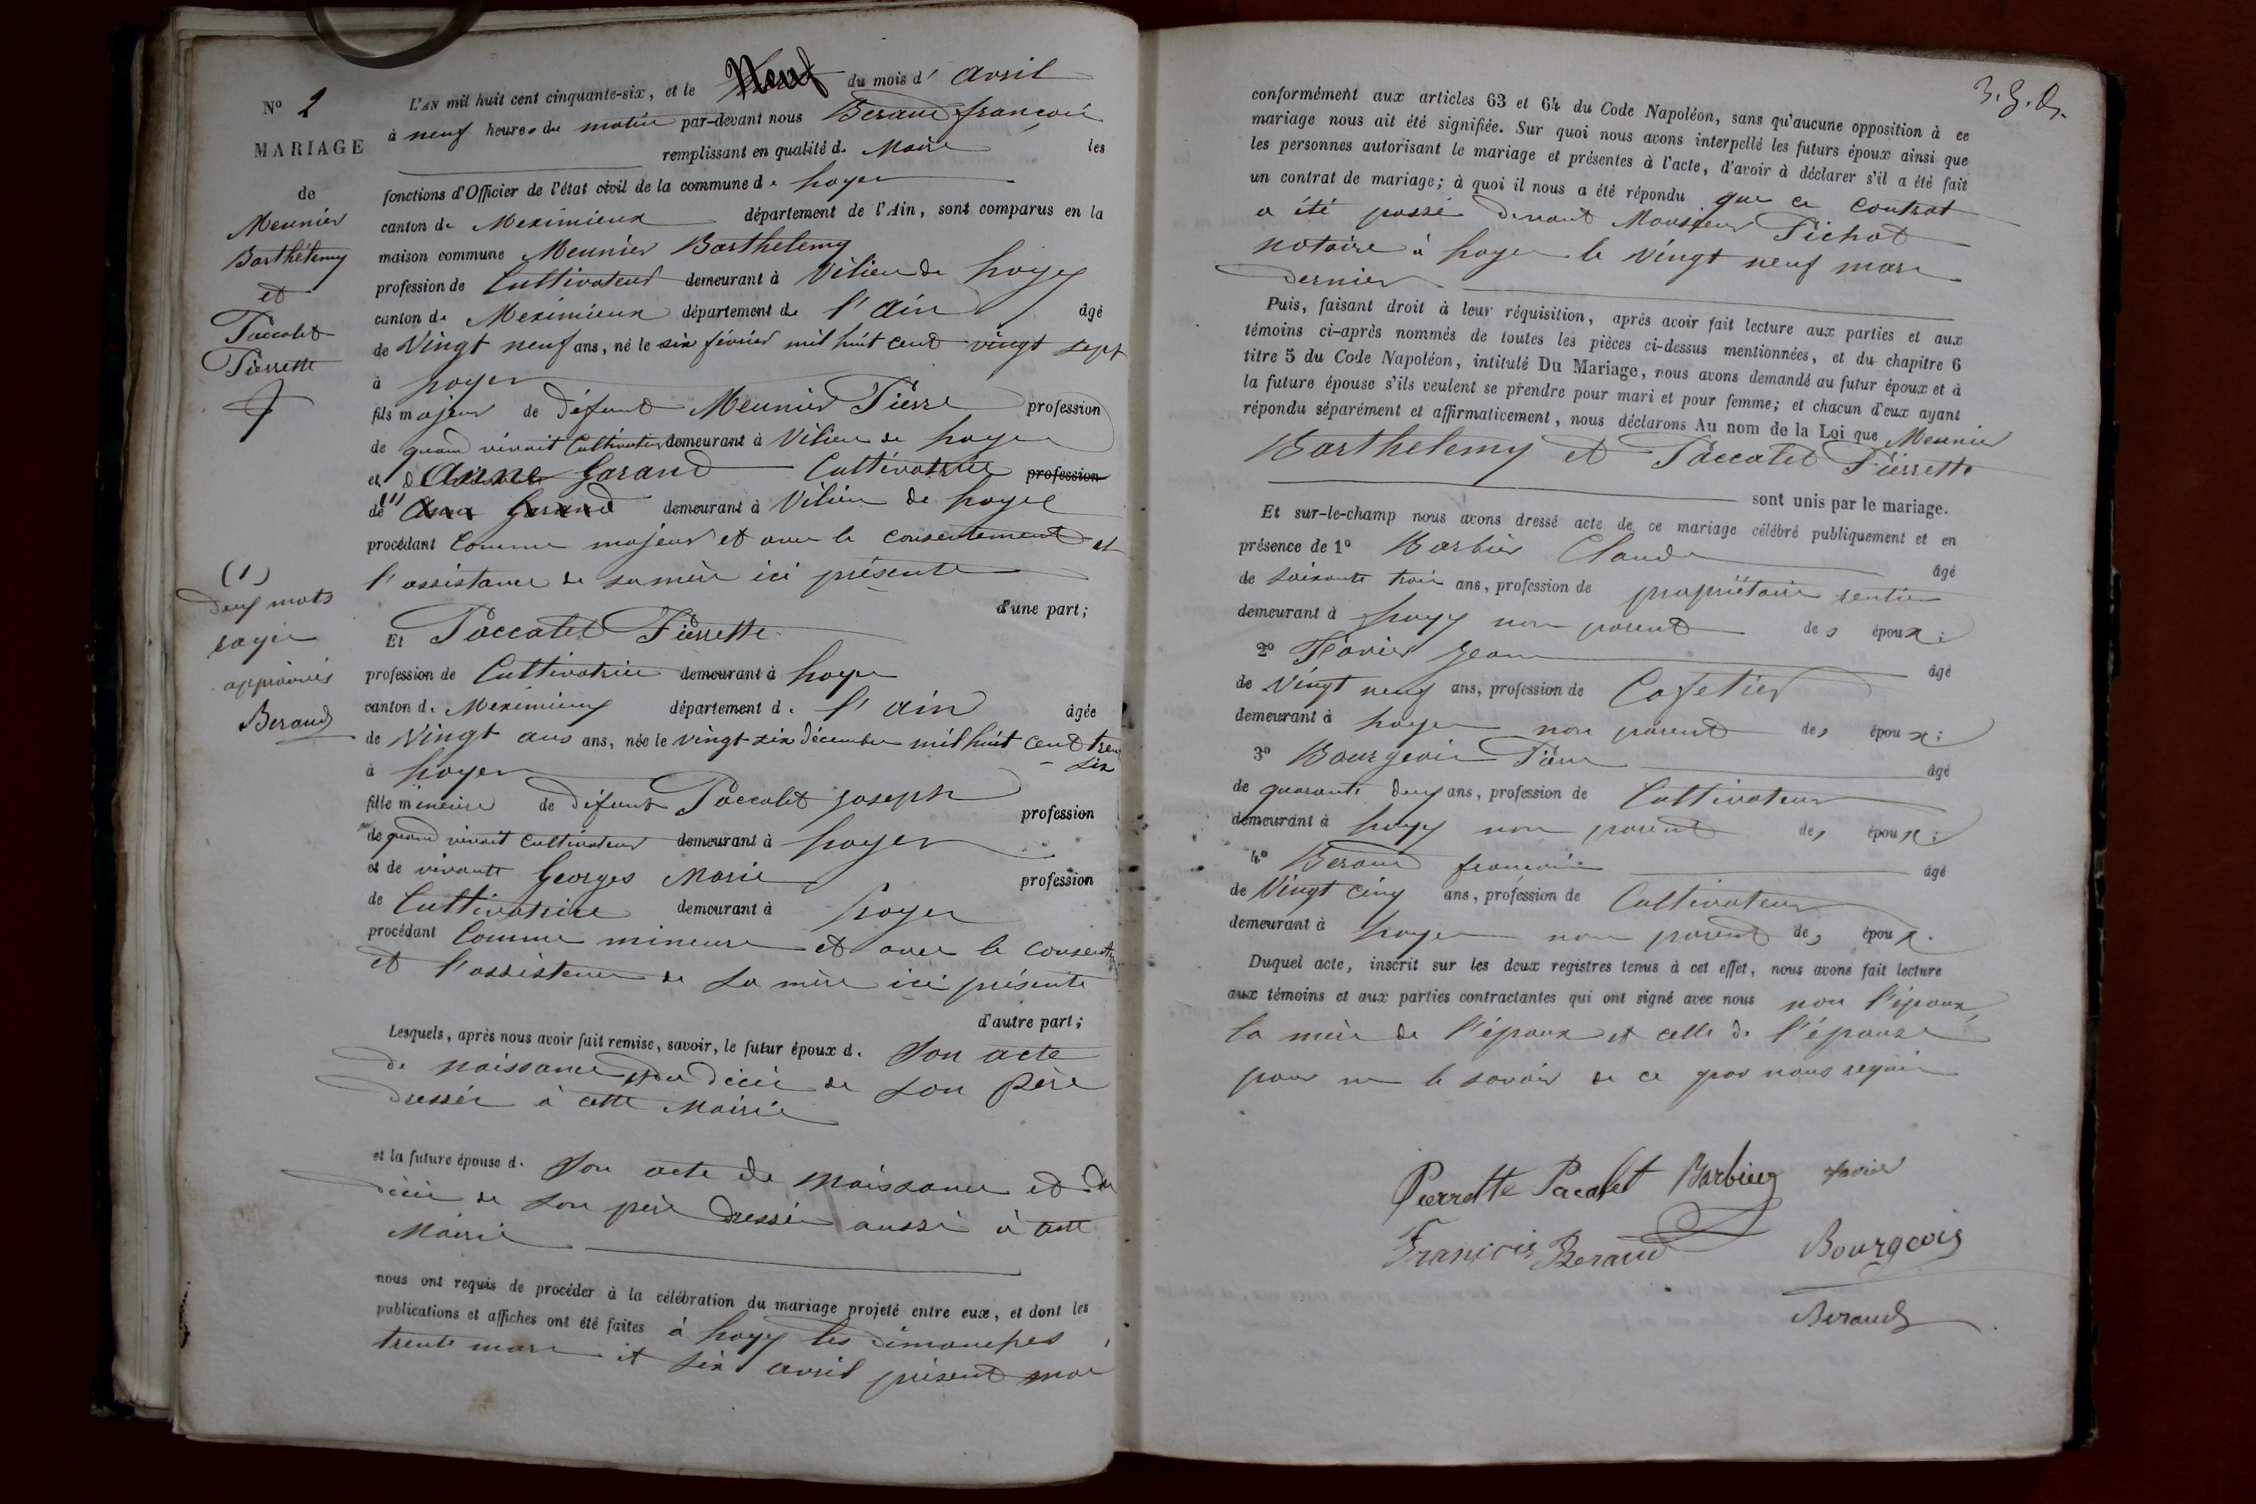 N° 2
MARIAGE
de
Meunier
Barthélemy
et
Paccalet
Pierrette
L'AN mil huit cent cinquante-six, et le Neuf du mois d' avril
à neuf heures du matin par-devant nous Beraud françois
remplissant en qualité de Maire les
fonctions d'Officier de l'état civil de la commune de Loyes
canton de Meximieux département de l'Ain, sont comparus en la
maison commune Meunier Barthelemy
profession de Cultivateur demeurant à Vilieu de Loyes
canton de Meximieux département de l'ain âgé
de Vingt neuf ans, né le six février mil huit cent vingt sept
à Loyes
fils majeur de défunt Meunier Pierre profession
de quand vivait Cultivateur demeurant à Vilieu de Loyes
et d Anne Garand Cultivatrice profession
de (1) Anne Garand demeurant à Vilieu de Loyes
procédant Comme majeur et avec le consentement et
l'assistance de sa mère ici présente
d'une part;
(1)
deux mots
rayés
approuvés
Beraud
Et Paccalet Pierrette
profession de Cultivatrice demeurant à Loyes
canton de Meximieux département de l'ain âgée
de Vingt ans ans, née le vingt-six décembre mil huit cent trente
six
à Loyes
fille mineure de défunt Paccalet Joseph profession
de quand vivait Cultivateur demeurant à Loyes
et de vivante Georges Marie profession
de Cultivatrice demeurant à Loyes
procédant Comme mineure et avec le consentt
et l'assistance de sa mère ici présente
d'autre part;
Lesquels, après nous avoir fait remise, savoir, le futur époux d. Son acte
de naissance et du décès de son père
dressés à cette Mairie
et la future épouse d. Son acte de naissance et du
décès de son père dressés aussi à cette
Mairie
nous ont requis de procéder à la célébration du mariage projeté entre eux, et dont les
publications et affiches ont été faites à Loyes les dimanches
trente mars et six avril présent mois
conformément aux articles 63 et 64 du Code Napoléon, sans qu'aucune opposition à ce
mariage nous ait été signifiée. Sur quoi nous avons interpellé les futurs époux ainsi que
les personnes autorisant le mariage et présentes à l'acte, d'avoir à déclarer s'il a été fait
un contrat de mariage; à quoi il nous a été répondu que ce contrat
a été passé devant Monsieur Pichot
notaire à Loyes le vingt neuf mars
dernier
Puis, faisant droit à leur réquisition, après avoir fait lecture aux parties et aux
témoins ci-après nommés de toutes les pièces ci-dessus mentionnées, et du chapitre 6
titre 5 du Code Napoléon, intitulé Du Mariage, nous avons demandé au futur époux et à
la future épouse s'ils veulent se prendre pour mari et pour femme; et chacun d'eux ayant
répondu séparément et affirmativement, nous déclarons Au nom de la Loi que Meunier
Barthelemy et Paccalet Pierrette
sont unis par le mariage.
Et sur-le-champ nous avons dressé acte de ce mariage célébré publiquement et en
présence de 1° Barbier Claude âgé
de soixante trois ans, profession de propriétaire rentier
demeurant à Loyes non parent des époux;
2° Favier Jean âgé
de Vingt neuf ans, profession de Cafetier
demeurant à Loyes non parent des époux;
3° Bourgeois Pierre âgé
de quarante deux ans, profession de Cultivateur
demeurant à Loyes non parent des époux;
4° Beraud françois âgé
de Vingt cinq ans, profession de Cultivateur
demeurant à Loyes non parent des époux.
Duquel acte, inscrit sur les deux registres tenus à cet effet, nous avons fait lecture
aux témoins et aux parties contractantes qui ont signé avec nous non l'époux,
la mère de l'époux et celle de l'épouse
pour ne le savoir de ce par nous requis
Pierrette Pacalet Barbier favier
François Beraud Bourgeois
Beraud